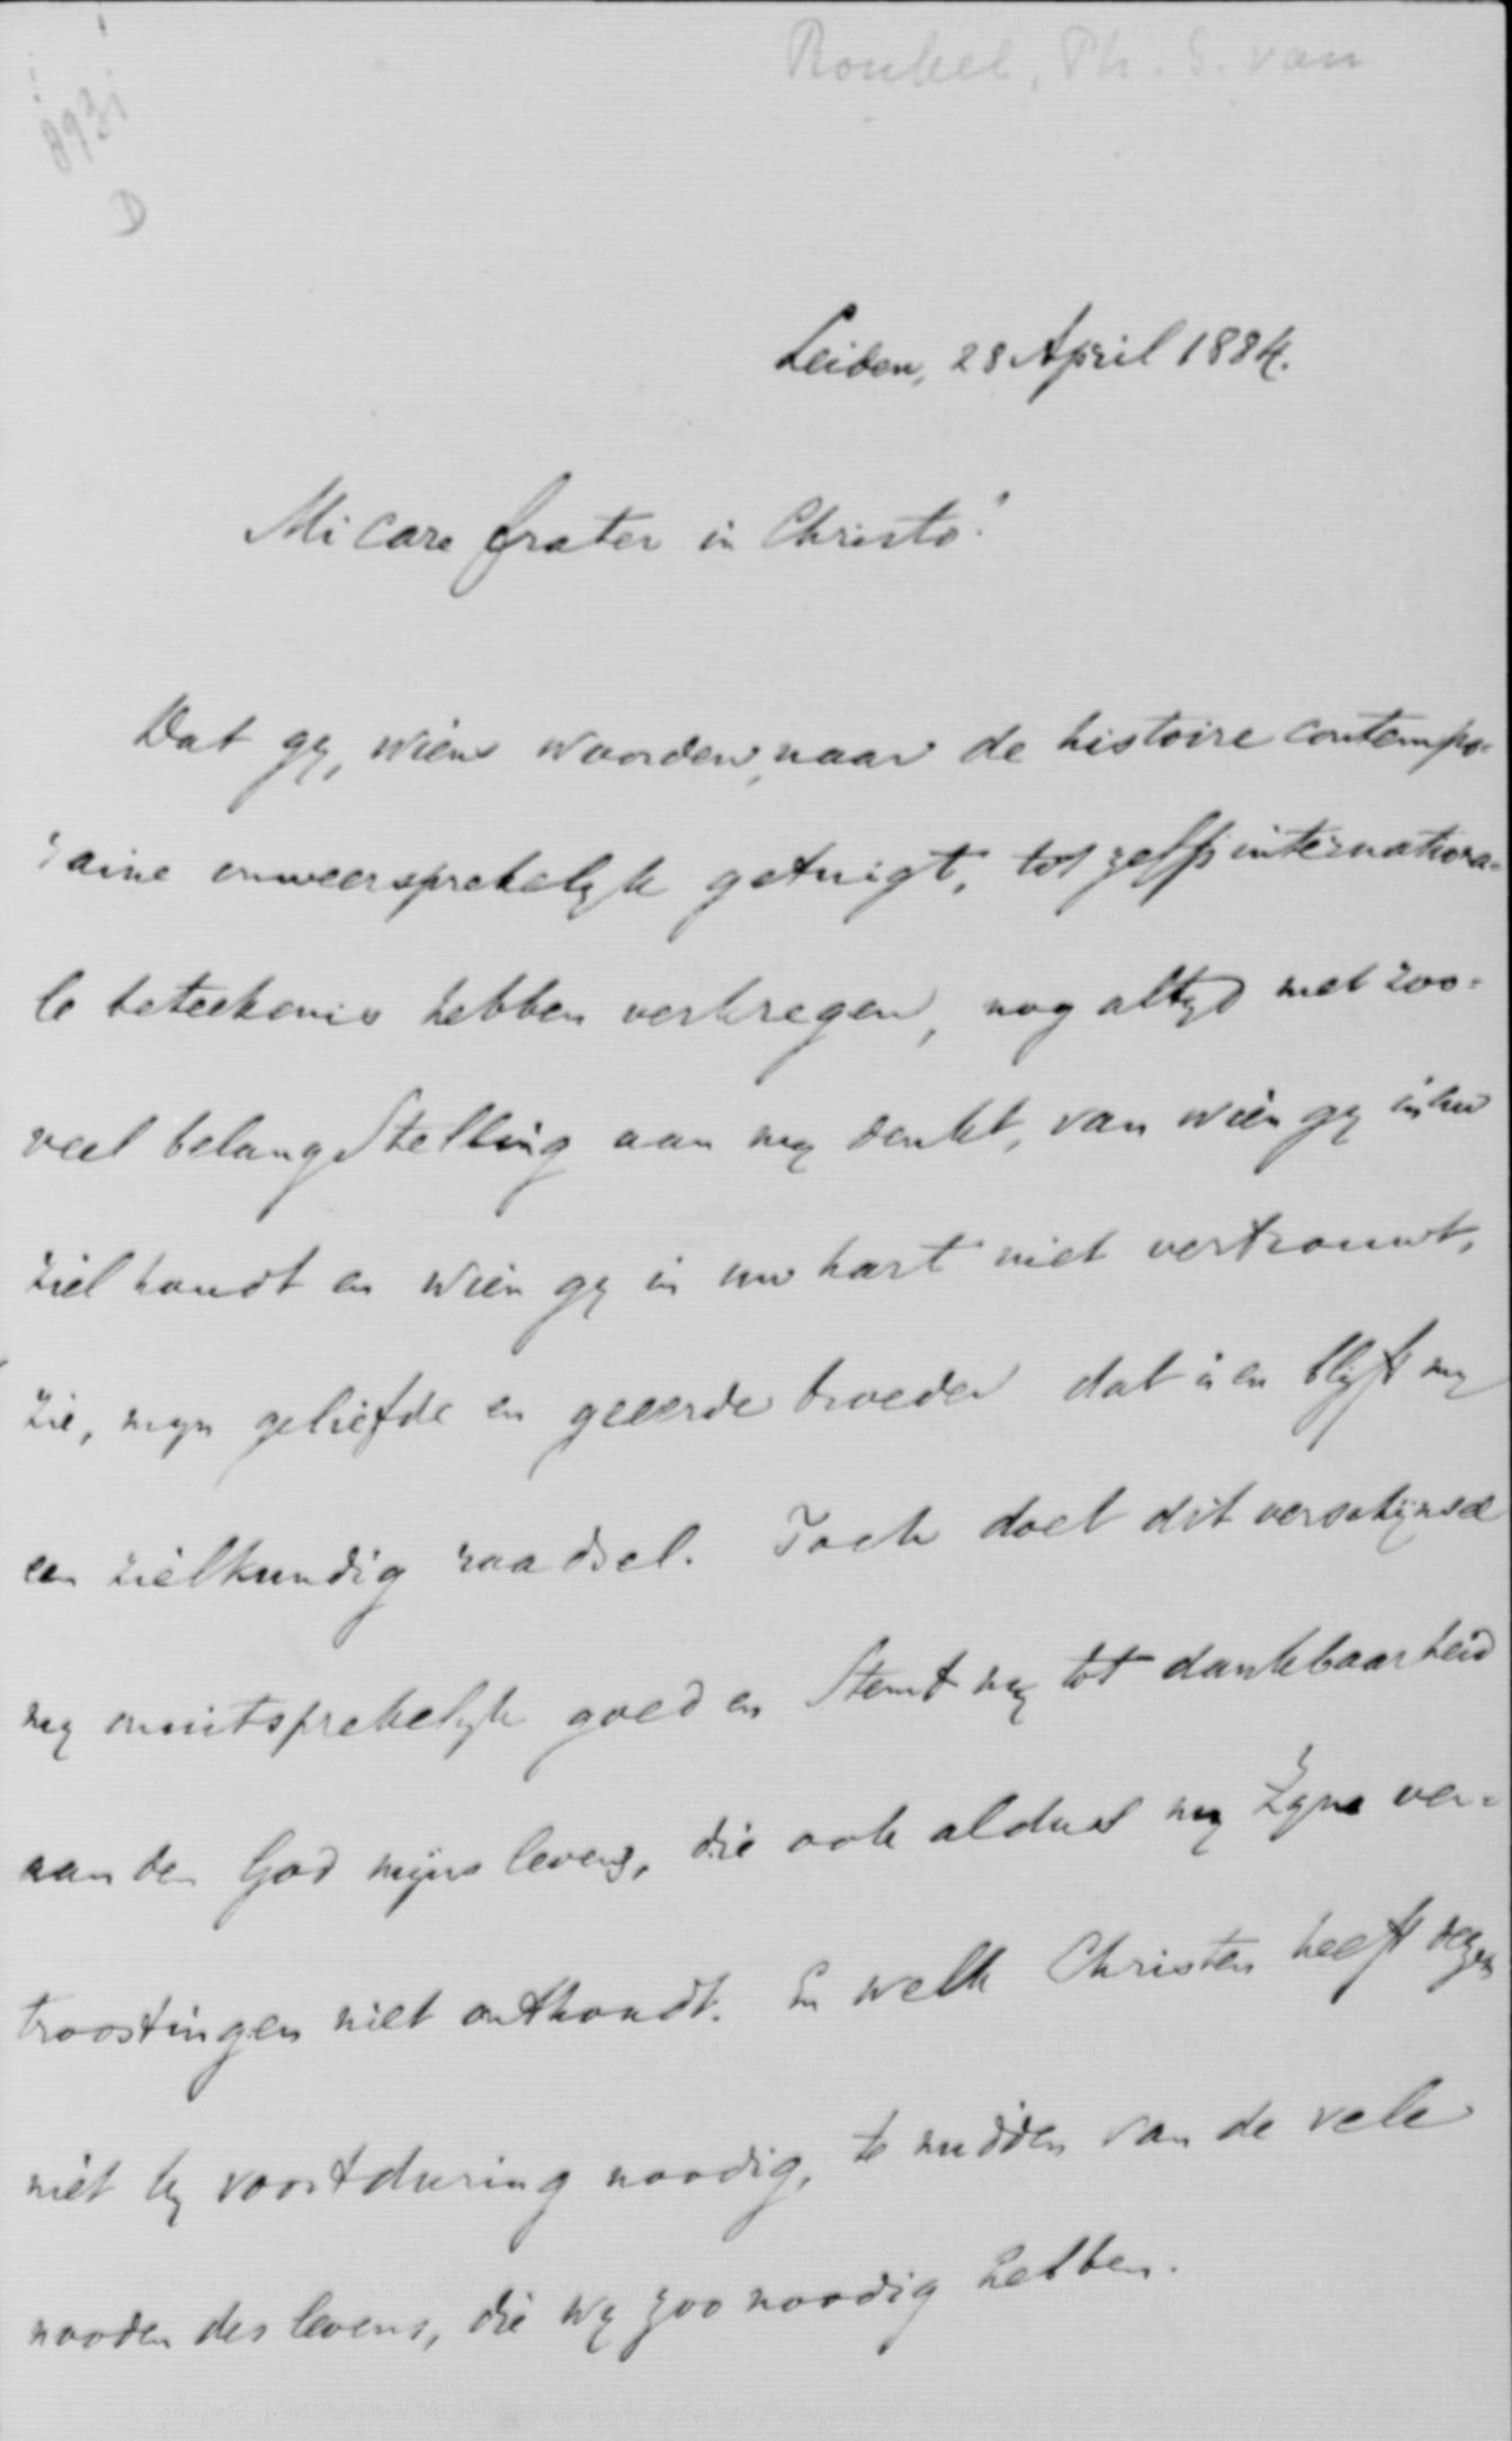 Ronkel, Ph. S. van
8931
D
Leiden, 28 April 1884.
Mi care frater in Christo!
Dat gy, wiens woorden, naar de histoire contempo-
raine onweersprekelyk getuigt, tot zelfs internationa-
le beteekenis hebben verkregen, nog altyd met zoo-
veel belangstelling aan my denkt, van wien gy in uw
ziel houdt en wien gy in uw hart niet vertrouwt,
zie, myn geliefde en geeerde broeder dat is en blyft my
een zielkundig raadsel. Toch doet dit verschijnsel
my onuitsprekelyk goed en stemt my tot dankbaarheid
aan den God mijns levens, die ook aldus my Zyne ver-
troostingen niet onthoudt. En welk Christen heeft dezen
niet by voortduring noodig, te midden van de vele
nooden des levens, die wy zoo noodig hebben.